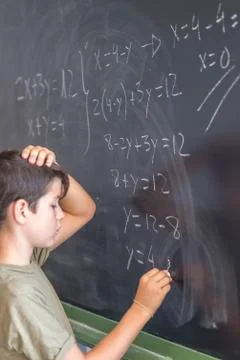 2x+3y=12
x+y=4
x=4-y →
2(4-y)+3y=12
8-2y+3y=12
8+y=12
y=12-8
y=4
x=4-4=
x=0